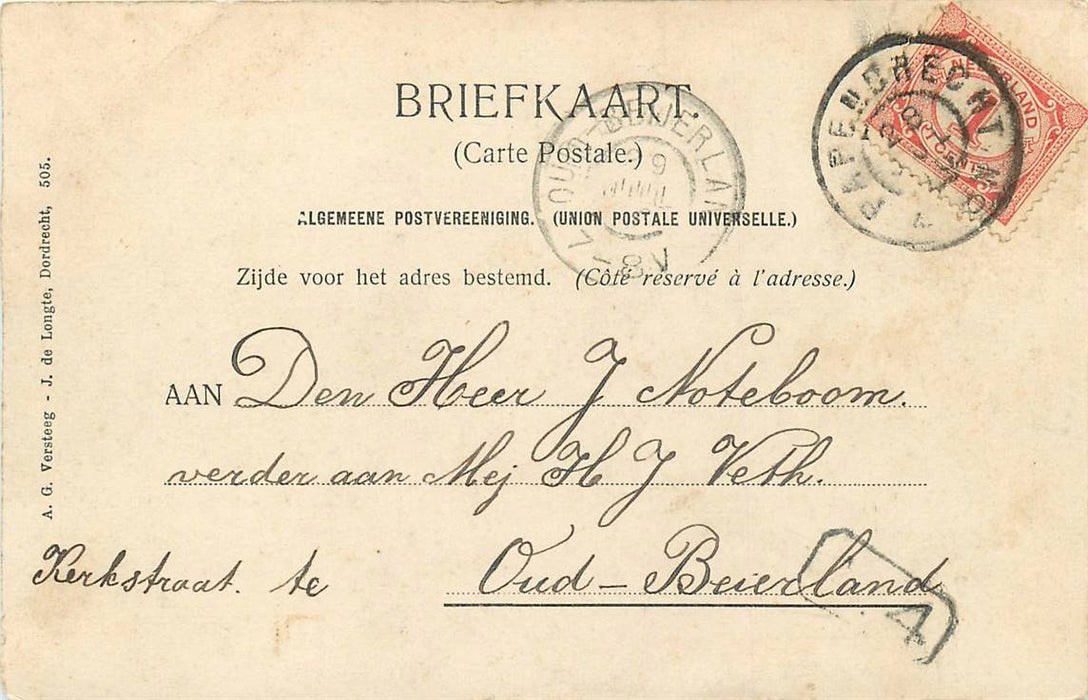 BRIEFKAART.
(Carte Postale.)
ALGEMEENE POSTVEREENIGING. (UNION POSTALE UNIVERSELLE.)
Zijde voor het adres bestemd. (Côté réservé à l'adresse.)
AAN Den Heer J Noteboom.
verder aan Mej H J Veth.
Kerkstraat. te Oud-Beierland
A. G. Versteeg - J. de Longte, Dordrecht, 505.
PAPENDRECHT
NEDERLAND
OUD-BEIJERLAND
4